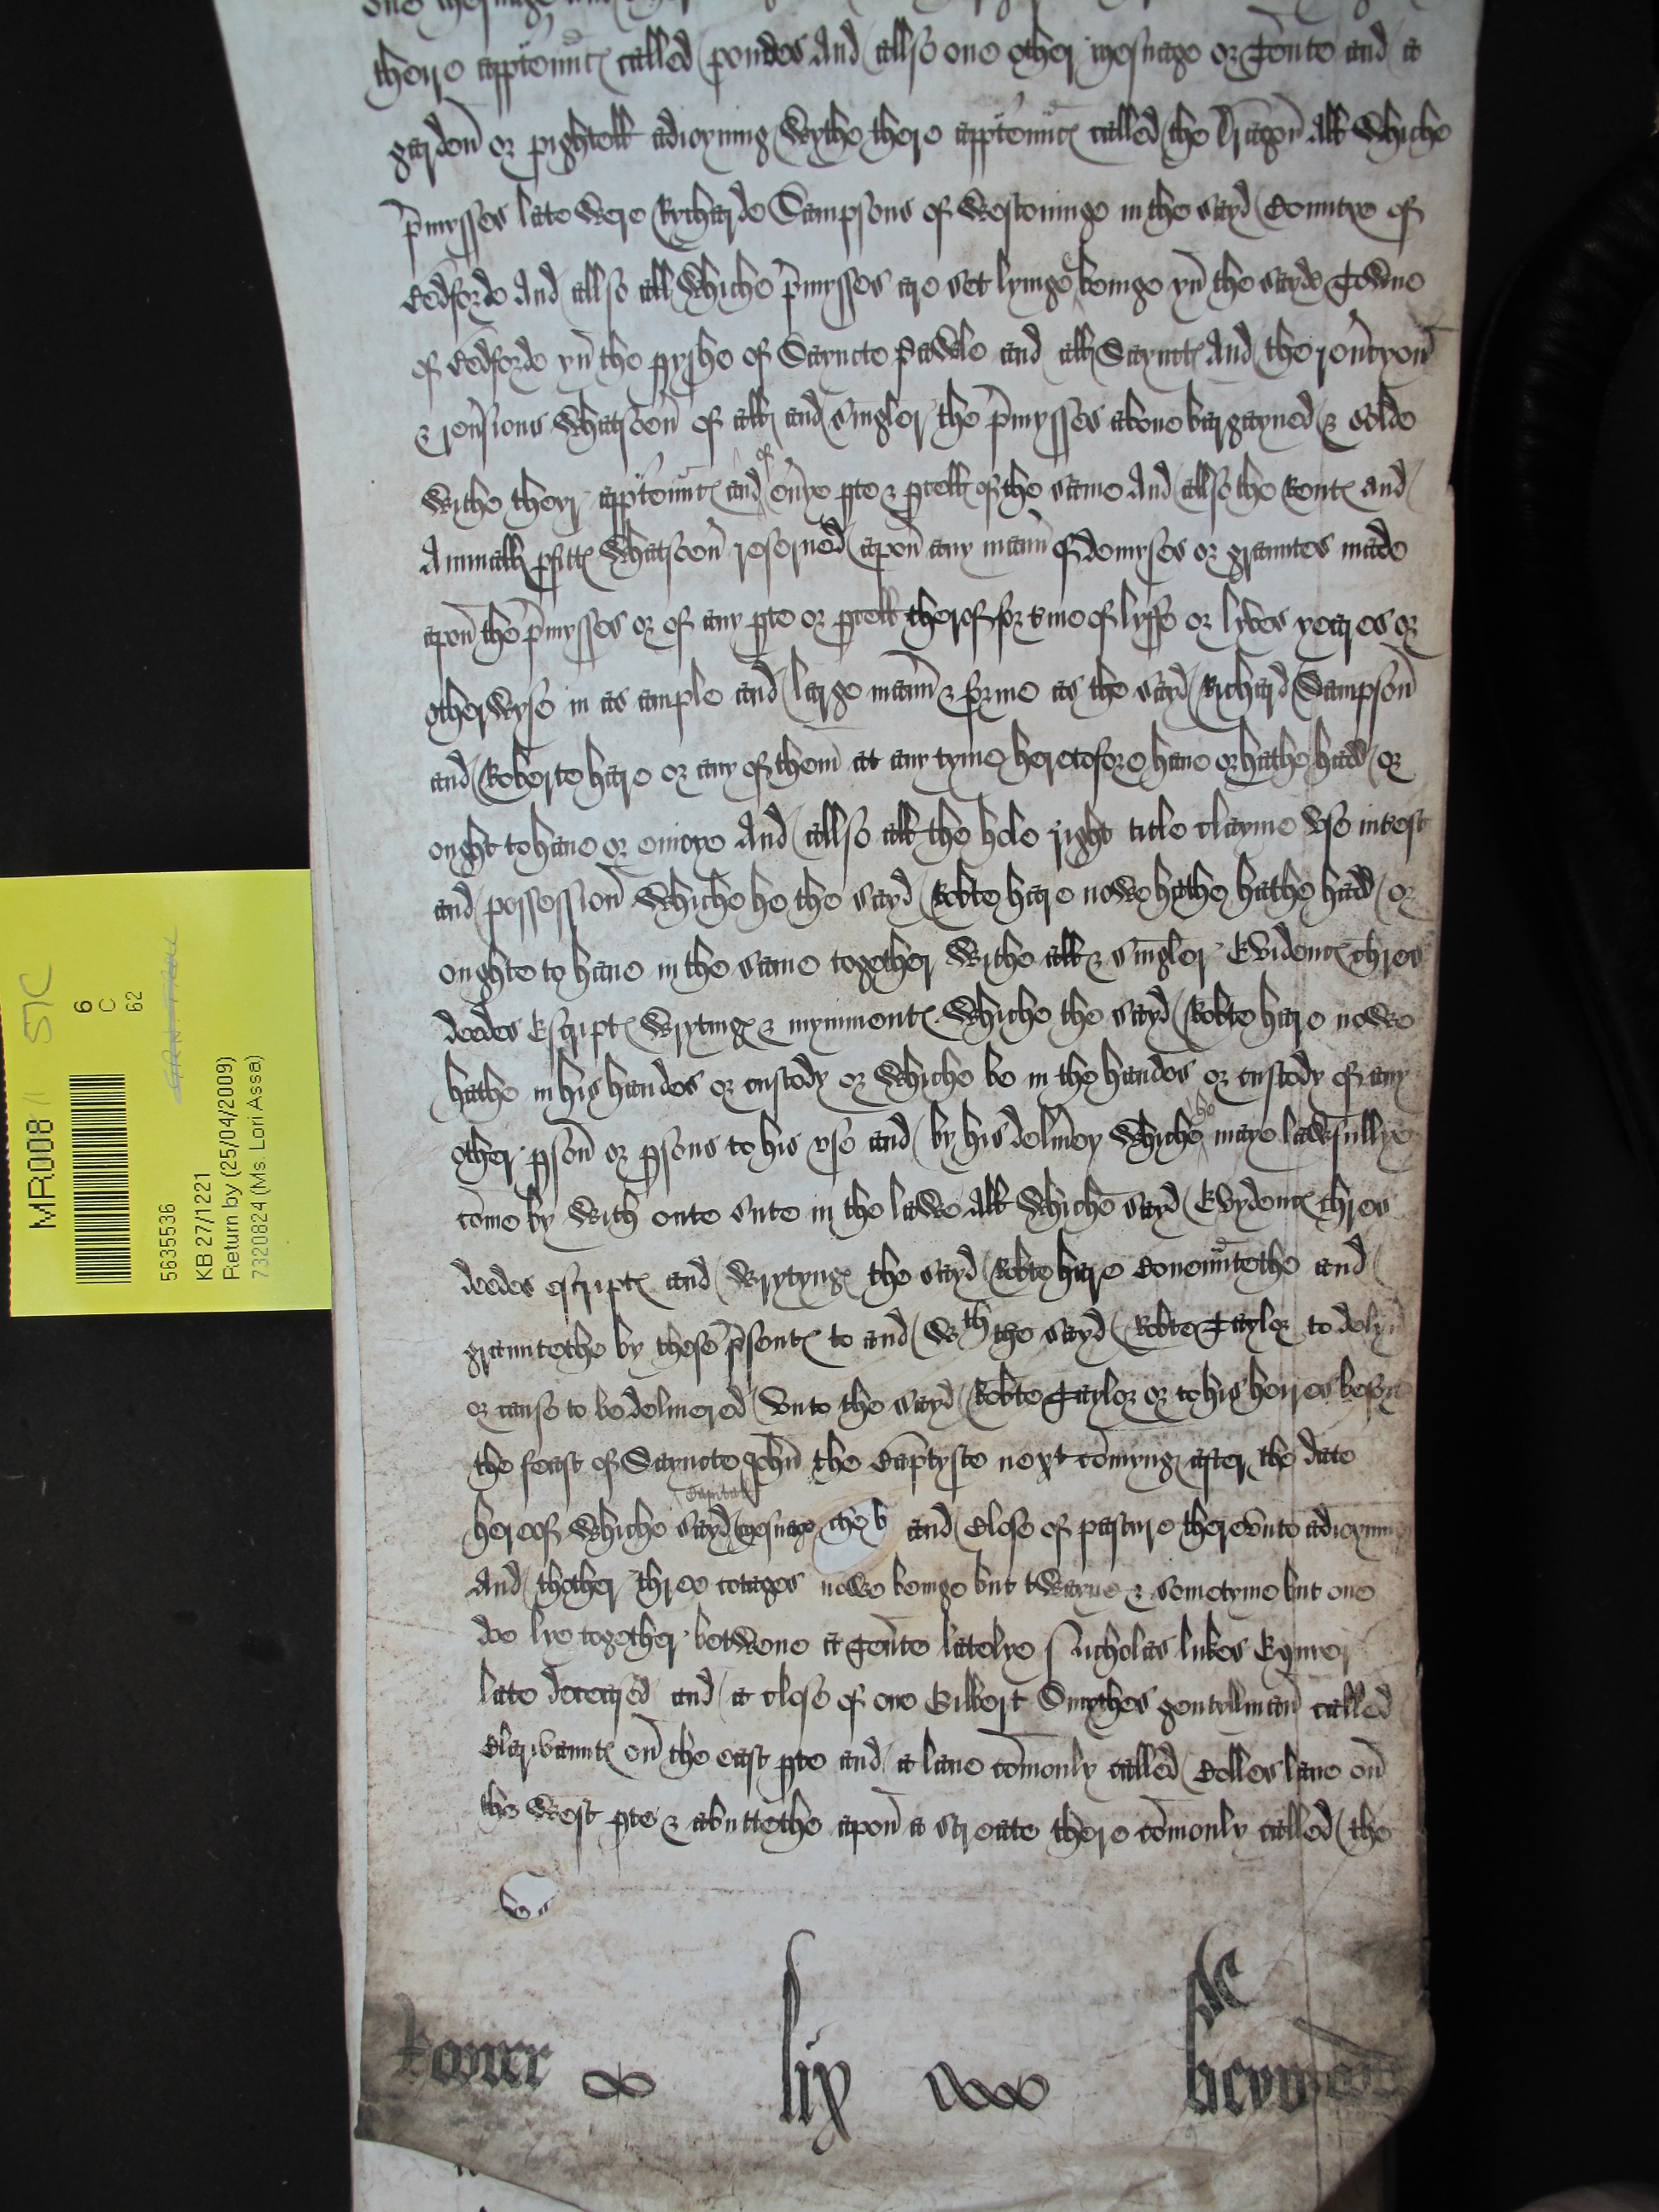 there apptenncę called pondes And allso one other mesuage or Tente and a
garden or pightell adioynyng wythe there apptenncę called the Dragon All whiche
pmysses late were Rycharde Sampsons of westoninge in the sayd Countye of
Bedforde And allso all whiche pmysses are set lyinge beinge yn the sayde Towne
of Bedforde yn the pyshe of Sayncte Pawle and all Saynctę And the reu'cyon
& reu'sions whatsoeu' of all and singler the pmysses aboue bargayned & solde
withe theyr apptenncę and of eu'ye pte & pcell of the same And allso the Rentę and
Annuall pfittę whatsoeu' reserued apon any mann' of demyses or grauntes made
apon the pmysses or of any pte or pcell therof for tme of lyffe or lyves yeares or
otherwyse in as ample and large mann' & forme as the sayd Richard Sampson
and Roberte hare or any of them at any tyme heretofore haue or hathe hadd or
ought to haue or enioye And allso all the hole right title clayme vse intrest
and possession whiche he the sayd Robte hare nowe hathe hathe hadd or
oughte to haue in the same together withe all & singler Evidencę chres
deedes Escriptę wrytingę & mynimentę whiche the sayd Robte hare nowe
hathe in his handes or custody or whiche be in the handes or custody of any
other pson or psons to his vse and by his delyu'ey whiche he maye lawfullye
come by with oute sute in the lawe All whiche sayd Evydencę chres
deedes escriptę and wrytyngę the sayd Robte hare Couenntethe and
grauntethe by these psentę to and wth the sayd Robte Taylor to delyu'
or cause to be deliuered vnto the sayd Robte Taylor or to his heires before
the feast of Sayncte John the Baptyste next comyng after the date
hereof whiche sayd Capitall mesuage and Close of pasture therevnto adioynin
And thother three cotages nowe beinge but twayne & sometyme but one
doe lye together betwene a Tente latelye Nicholas lukes Esquier
late deceased and a close of one Gilbert Smythes gentyllman called
on the east pte and a lane comonly called Colles lane on
the west pte & abuttethe apon a streate there comonly called the
vs
Rowrr lix heywood
MR008
57C
6
C
62
5635536
KB 27/1221
Return by (25/04/2009)
7320824 (Ms. Lori Assa)